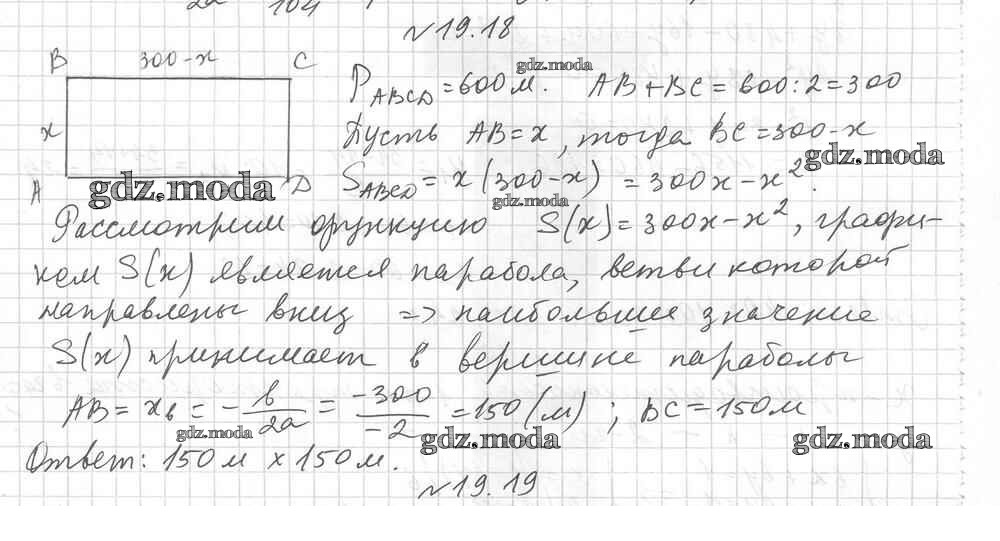 2a 104
№19.18
B 300-x C
gdz.moda
P ABCD = 600 м. AB+BC = 600:2=300
x
Пусть AB=x, тогда BC=300-x
gdz.moda
A gdz.moda D
S ABCD = x(300-x) = 300x-x².
gdz.moda
Рассмотрим функцию S(x)=300x-x², графи-
ком S(x) является парабола, ветви которой
направлены вниз => наибольшее значение
S(x) принимает в вершине параболы
AB = xв = -b/2a = -300/-2 = 150 (м) ; BC = 150 м
gdz.moda gdz.moda gdz.moda
Ответ: 150 м x 150 м.
№19.19